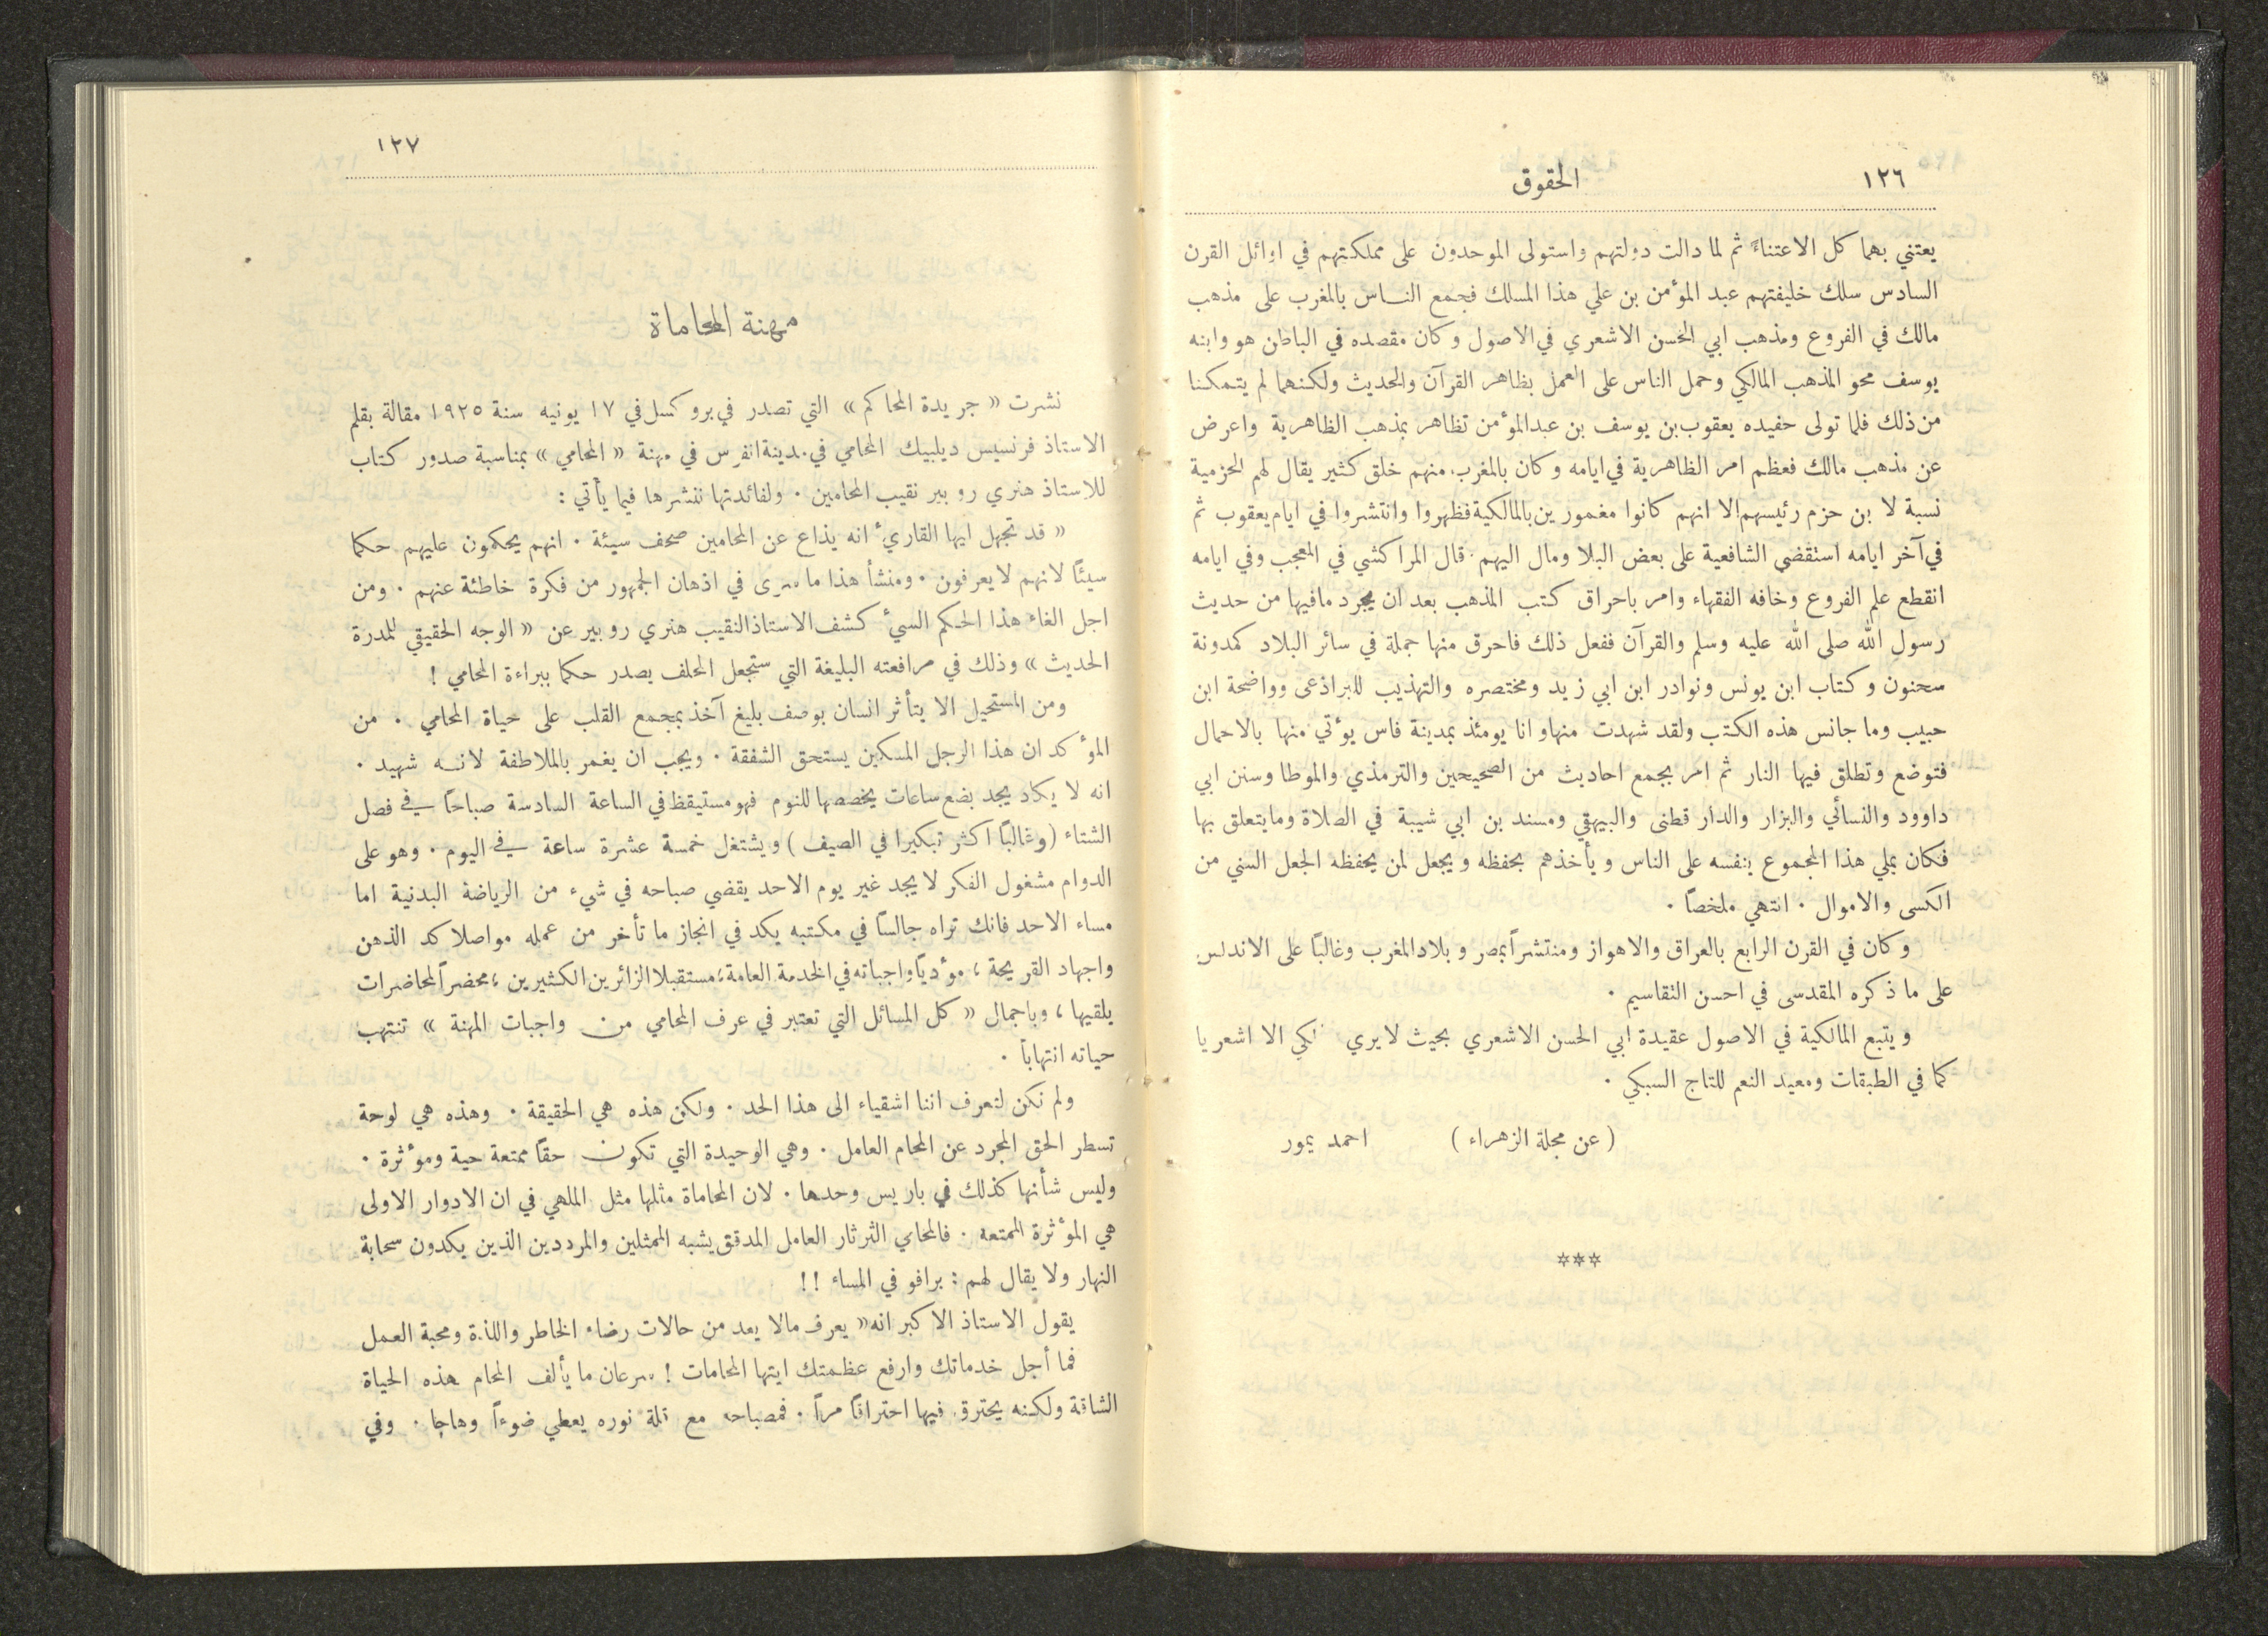 ١٢٦
الحقوق
يعتني بهما كل الاعتناءً ثم لما دالت دولتهم واستولى الموحدون على مملكتهم في اوائل القرن
السادس سلك خليفتهم عبد المؤمن بن علي هذا المسلك فجمع النـاس بالمغرب على مذهب
مالك في الفروع ومذهب ابي الحسن الاشعري في الاصول وكان مقصده في الباطن هو وابنه
يوسف محو المذهب المالكي وحمل الناس على العمل بظاهر القرآن والحديث ولكنهما لم يتمكنا
من ذلك فلما تولى حفيده يعقوب بن يوسف بن عبد المؤمن تظاهر بمذهب الظاهرية واعرض
عن مذهب مالك فعظم امر الظاهرية في ايامه وكان بالمغرب منهم خلق كثير يقال لهم الحزمية
نسبة لا بن حزم رئيسهم الا انهم كانوا مغمورين بالمالكية فظهروا وانتشروا في ايام يعقوب ثم
في آخر ايامه استقضي الشافعية على بعض البلا ومال اليهم . قال المراكشي في المعجب وفي ايامه
انقطع علم الفروع وخافه الفقهاء وامر باحراق كتب المذهب بعد ان يجرد مافيها من حديث
رسول الله صلى الله عليه وسلم والقرآن ففعل ذلك فاحرق منها جملة في سائر البلاد كمدونة
سحنون وكتاب ابن يونس ونوادر ابن ابي زيد ومختصره والتهذيب للبراذعى وواضحة ابن
حبيب وما جانس هذه الكتب ولقد شهدت منهاوانا يومئذ بمدينة فاس يؤتي منها بالاحمال
فتوضع وتطلق فيها النار ثم امر بجمع احاديث من الصحيحين والترمذي والموطا وسنن ابي
داوود والنسائي والبزار والدار قطنى والبيهقي ومسند بن ابي شيبة في الصلاة ومايتعلق بها
فكان يملي هذا المجموع بنفسه على الناس ويأخذهم بحفظه ويجعل لمن يحفظه الجعل السني من
الكسى والاموال . انتهي ملخصاً .
وكان في القرن الرابع بالعراق والاهواز ومنتشراً بمصر وبلاد المغرب وغالباً على الاندلس
على ما ذكره المقدسى في احسن التقاسيم .
ويتبع المالكية في الاصول عقيدة ابي الحسن الاشعري بحيث لايري لكي الا اشعريا
كما في الطبقات ومعيد النعم للتاج السبكي .
( عن مجلة الزهراء ) احمد يمور
***
١٢٧
مهنة المحاماة
نشرت « جريدة المحاكم » التي تصدر في بروكسل في ١٧ يونيه سنة ١٩٢٥ مقالة بقلم
الاستاذ فرنسيس ديلبيك المحامي في مدينة انفرس في مهنة « المحامي » بمناسبة صدور كتاب
للاستاذ هنري روبير نقيب المحامين . ولفائدتها ننشرها فيما يأتي :
« قد تجهل ايها القارئ انه يذاع عن المحامين صحف سيئة . انهم يحكمون عليهم حكما
سيئاً لانهم لايعرفون . ومنشأ هذا ما سرى في اذهان الجمهور من فكرة خاطئة عنهم . ومن
اجل الغاء هذا الحكم السيء كشف الاستاذ النقيب هنري روبير عن « الوجه الحقيقي للمدرة
الحديث » وذلك في مرافعته البليغة التي ستجعل المحلف يصدر حكما ببراءة المحامي !
ومن المستحيل الا يتأثر انسان بوصف بليغ آخذ بمجمع القلب على حياة المحامي . من
المؤكد ان هذا الرجل المسكين يستحق الشفقة . ويجب ان يغمر بالملاطفة لانـه شهيد .
انه لا يكاد يجد بضع ساعات يخصصها للنوم فهو مستيقظ في الساعة السادسة صباحاً في فصل
الشتاء (وغالباً اكثر تبكيرا في الصيف ) ويشتغل خمسة عشرة ساعة في اليوم . وهو على
الدوام مشغول الفكر لا يجد غير يوم الاحد يقضي صباحه في شيء من الرياضة البدنية اما
مساء الاحد فانك تراه جالساً في مكتبه يكد في انجاز ما تأخر من عمله مواصلا كد الذهن
واجهاد القريحة ، مؤدياً واجباته في الخدمة العامة ، مستقبلا الزائرين الكثيرين ، محضراً لمحاضرات
يلقيها ، وباجمال « كل المسائل التي تعتبر في عرف المحامي من واجبات المهنة » تنتهب
حياته انتهاباً .
ولم نكن لنعرف اننا اشقياء الى هذا الحد . ولكن هذه هي الحقيقة . وهذه هي لوحة
تسطر الحق المجرد عن المحام العامل . وهي الوحيدة التي تكون حقاً ممتعة حية ومؤثرة .
وليس شأنها كذلك في باريس وحدها . لان المحاماة مثلها مثل الملهي في ان الادوار الاولى
هي المؤثرة الممتعه . فالمحامي الثرثار العامل المدقق يشبه الممثلين والمرددين الذين يكدون سحابة
النهار ولا يقال لهم : برافو في المساء !!
يقول الاستاذ الاكبر انه « يعرف مالا يعد من حالات رضاء الخاطر واللذة ومحبة العمل
فما أجل خدماتك وارفع عظمتك ايتها المحامات ! سرعان ما يألف المحام هذه الحياة
الشاقة ولكنه يحترق فيها احتراقاً مراً . فمصباحه مع قلة نوره يعطي ضوءاً وهاجا . وفي